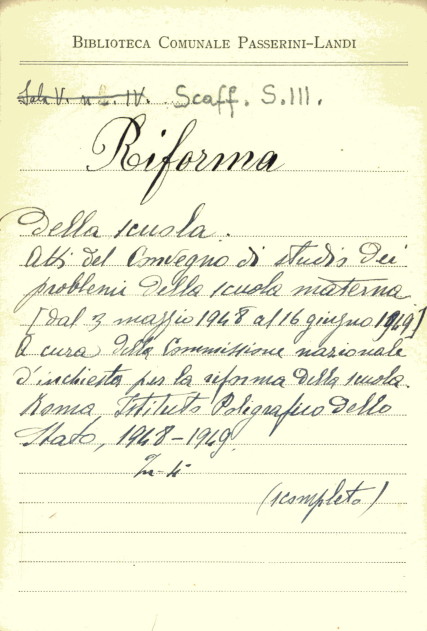 BIBLIOTECA COMUNALE PASSERINI-LANDI
Sala V. IV. Scaff. S.III.
Riforma
della scuola.
Atti del Convegno di studio dei
problemi della scuola materna
[dal 3 maggio 1948 al 16 giugno 1949]
A cura della Commissione nazionale
d'inchiesta per la riforma della scuola.
Roma Istituto Poligrafico dello
Stato, 1948-1949.
In-4°
(scompleto)